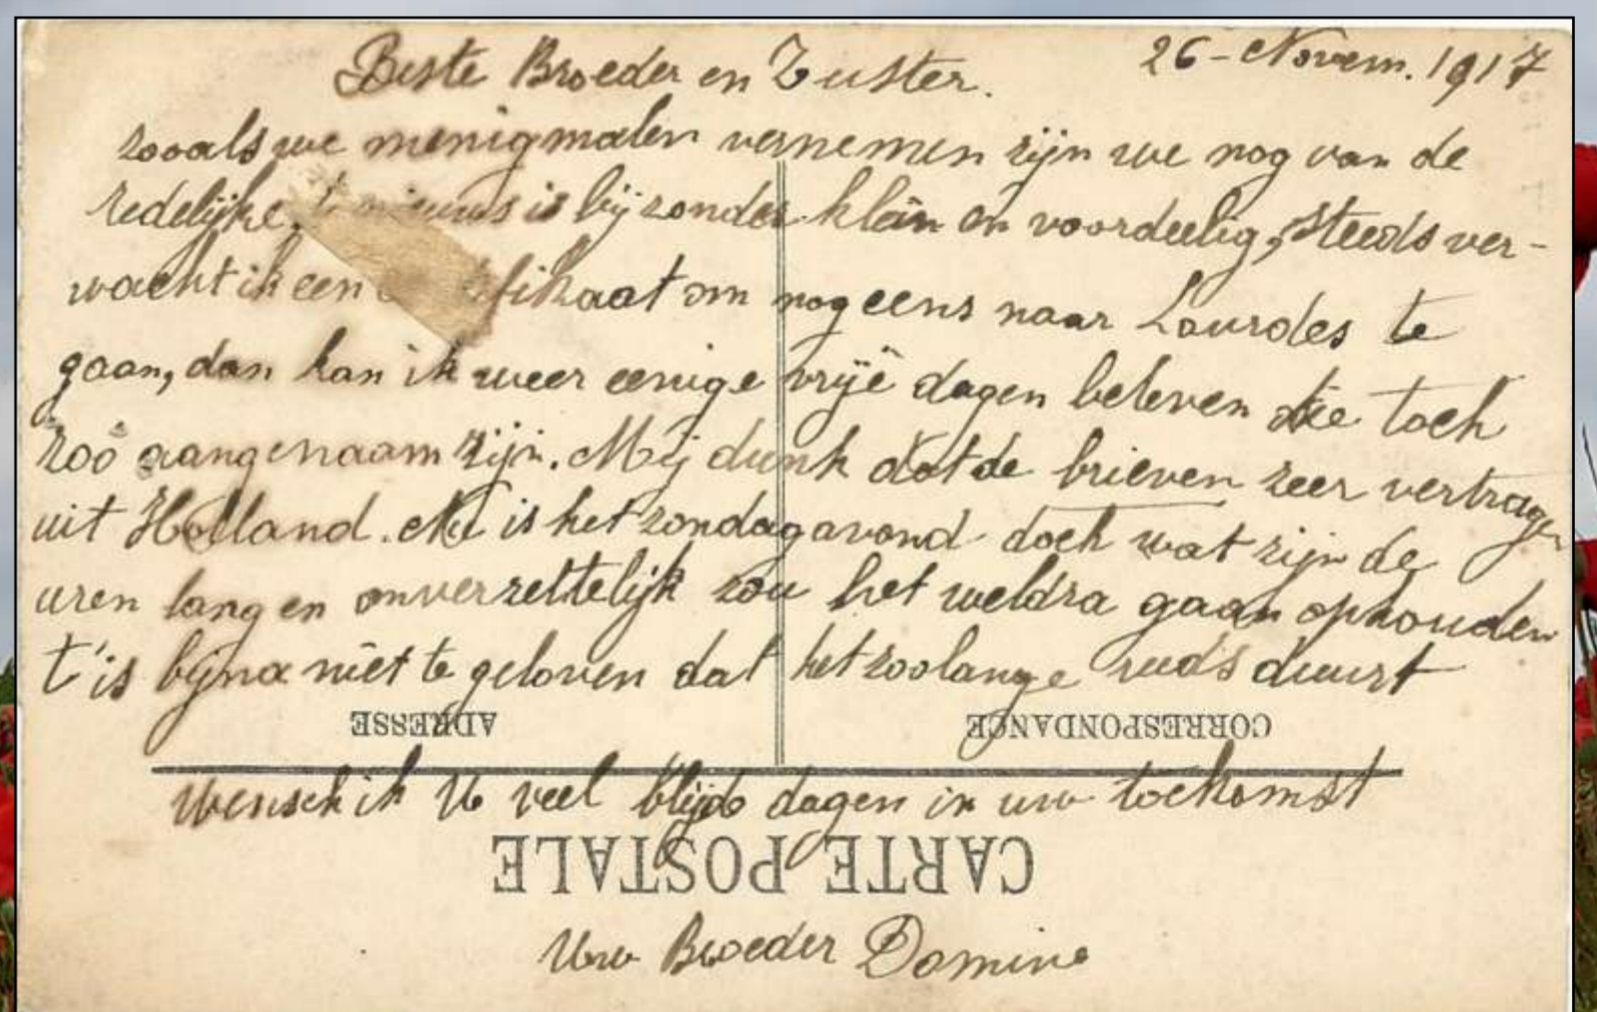 26-Novem. 1917
Beste Broeder en Zuster.
zooals we menigmalen vernemen zijn we nog van de
redelijke, t nieuws is bijzonder klein en voordeelig, steeds ver-
wacht ik een fikaat om nog eens naar Lourdes te
gaan, dan kan ik weer eenige vrijë dagen beleven die toch
zoo aangenaam zijn. Mij dunk dat de brieven zeer vertragen
uit Holland. Nu is het zondag avond doch wat zijn de
uren lang en onverzettelijk zou het weldra gaan ophouden
t'is bijna niet te geloven dat het zoolange reeds duurt
ADRESSE CORRESPONDANCE
wensch ik U veel blijde dagen in uw toekomst
CARTE POSTALE
Uw Broeder Domine